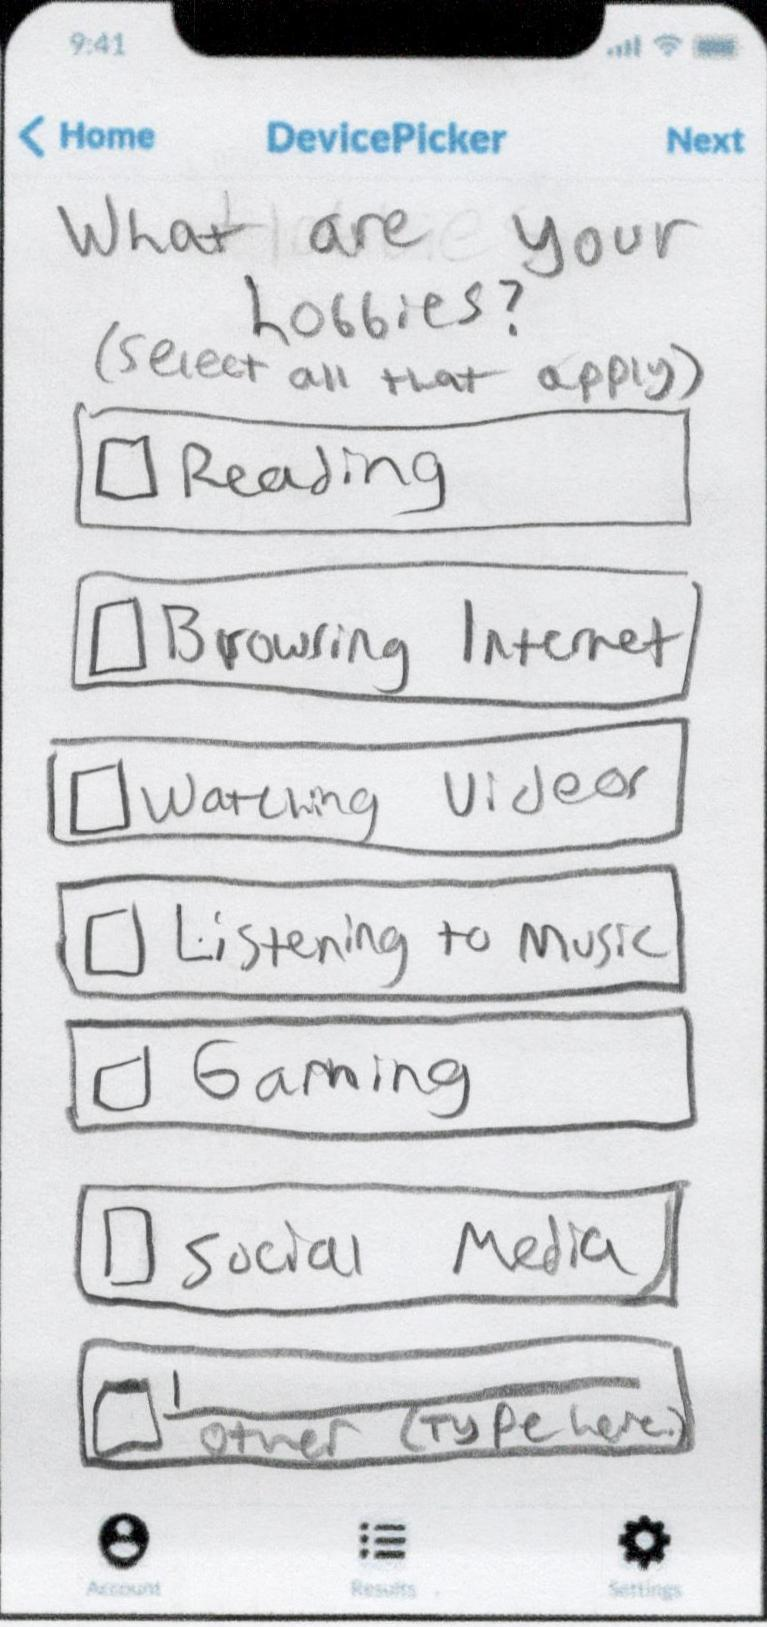 9:41
Home DevicePicker Next
What are your
hobbies?
(select all that apply)
Reading
Browsing Internet
Watching Videos
Listening to Music
Gaming
Social Media
other (Type here)
Account Results Settings